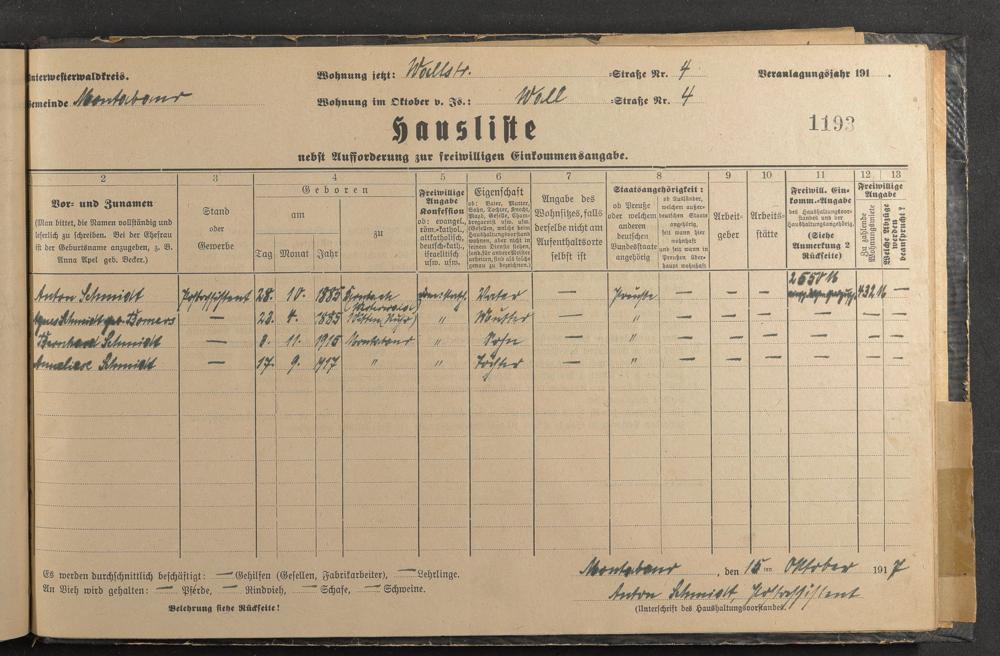 Unterwesterwaldkreis.
Wohnung jetzt: Wallstr. -Straße Nr. 4
Veranlagungsjahr 191 .
Gemeinde Montabaur
Wohnung im Oktober v. Js.: Wall -Straße Nr. 4
Hausliste
1193
nebst Aufforderung zur freiwilligen Einkommensangabe.
2 3 4 5 6 7 8 9 10 11 12 13
Vor- und Zunamen
(Man bittet, die Namen vollständig und
leserlich zu schreiben. Bei der Ehefrau
ist der Geburtsname anzugeben, z. B.
Anna Apel geb. Becker.)
Stand
oder
Gewerbe
Geboren
am
Tag Monat Jahr
zu
Freiwillige
Angabe
Konfession
ob: evangel.,
röm.-kathol.,
altkatholisch,
deutsch-kath.,
israelitisch
usw. usw.
Eigenschaft
ob: Vater, Mutter,
Sohn, Tochter, Knecht,
Magd, Geselle, Cham-
bregarnist usw. usw.
Angabe des
Wohnsitzes, falls
derselbe nicht am
Aufenthaltsorte
selbst ist
Staatsangehörigkeit:
ob Preuße
oder welchem
anderen
deutschen
Bundesstaate
angehörig
ob Ausländer,
welchem außer-
deutschen Staate
angehörig,
seit wann hier
wohnhaft
und seit wann in
Preußen über-
haupt wohnhaft
Arbeit-
geber
Arbeits-
stätte
Freiwill. Ein-
komm.-Angabe
des Haushaltungsvor-
standes und der
Haushaltungsangehörig.
(Siehe
Anmerkung 2
Rückseite)
Freiwillige
Angabe
Zu zahlende
Wohnungsmiete
Welche Abzüge
werden
beansprucht?
Anton Schmidt Postassistent 28. 10. 1885 röm. kath. Vater — Preuße — — 2550 M 432 M —
Agnes Schmidt geb. Bomers — 23. 4. 1885 Witten (Ruhr) " Mutter — " — — — — — —
Bernhard Schmidt — 8. 11. 1915 Montabaur " Sohn — " — — — — — —
Anneliese Schmidt — 17. 9. 1917 " " Tochter — " — — — — — —
Es werden durchschnittlich beschäftigt: — Gehilfen (Gesellen, Fabrikarbeiter), — Lehrlinge.
An Vieh wird gehalten: — Pferde, — Rindvieh, — Schafe, — Schweine.
Belehrung siehe Rückseite!
Montabaur, den 15ten Oktober 1917
Anton Schmidt, Postassistent
(Unterschrift des Haushaltungsvorstandes.)